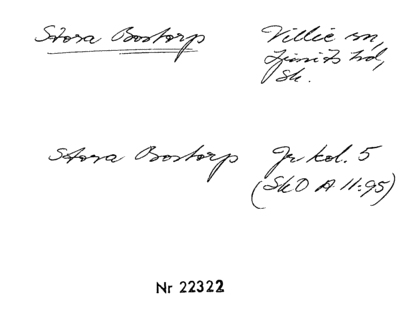 Stora Bostorp Villie sn,
Ljunits hd,
Sk.
Stora Bostorp Jr kol. 5
(SkO A 11:95)
Nr 22322